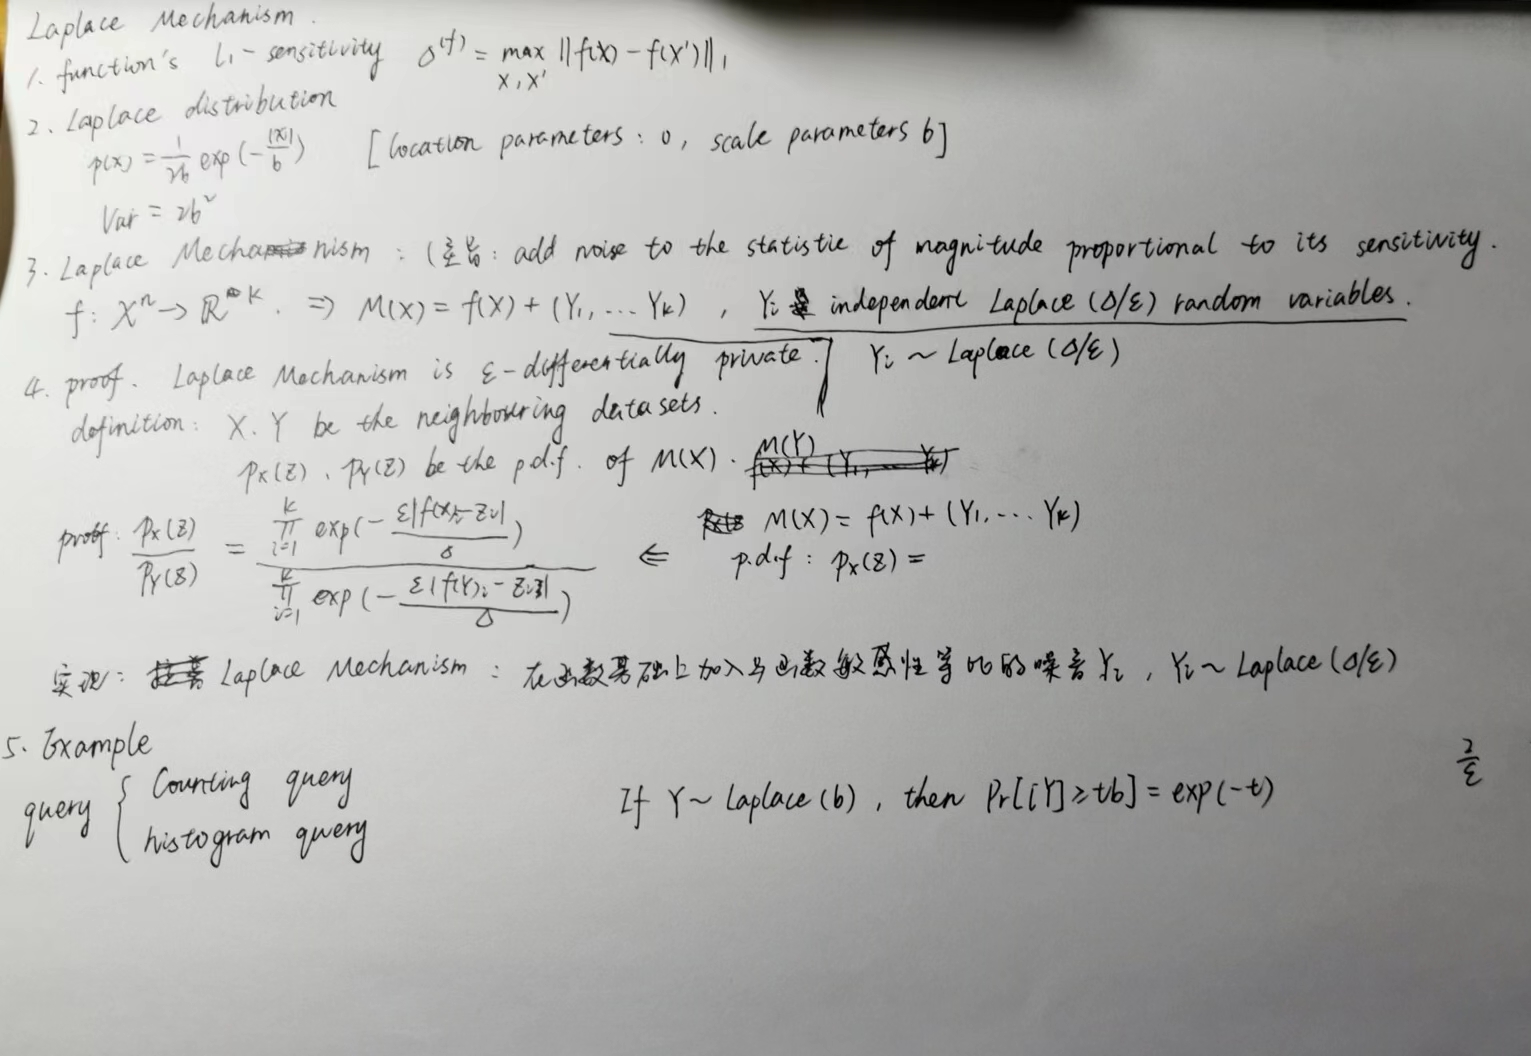 Laplace Mechanism.
1. function's L₁-sensitivity Δ^(f) = max_{X,X'} ||f(X) - f(X')||₁
2. Laplace distribution
p(x) = 1/2b exp(-|x|/b) [location parameters: 0, scale parameters b]
Var = 2b²
3. Laplace Mechanism: (主旨: add noise to the statistic of magnitude proportional to its sensitivity.
f: Xⁿ → ℝᵏ. ⇒ M(X) = f(X) + (Y₁, ... Yₖ), Yᵢ independent Laplace (Δ/ε) random variables.
4. proof. Laplace Mechanism is ε-differentially private. Yᵢ ~ Laplace (Δ/ε)
definition: X. Y be the neighbouring datasets.
p_X(z), p_Y(z) be the p.d.f. of M(X). M(Y)
proof: p_X(z)/p_Y(z) = ∏_{i=1}^{k} exp(-ε|f(X)ᵢ-zᵢ|/Δ) / ∏_{i=1}^{k} exp(-ε|f(Y)ᵢ-zᵢ|/Δ) ⇐ M(X) = f(X) + (Y₁, ... Yₖ)
p.d.f: p_X(z) =
实现: Laplace Mechanism: 在函数基础上加入与函数敏感性等比的噪音Yᵢ, Yᵢ ~ Laplace (Δ/ε)
5. Example
query { Counting query
histogram query
If Y ~ Laplace (b), then Pr[|Y| ≥ tb] = exp(-t)
2/ε